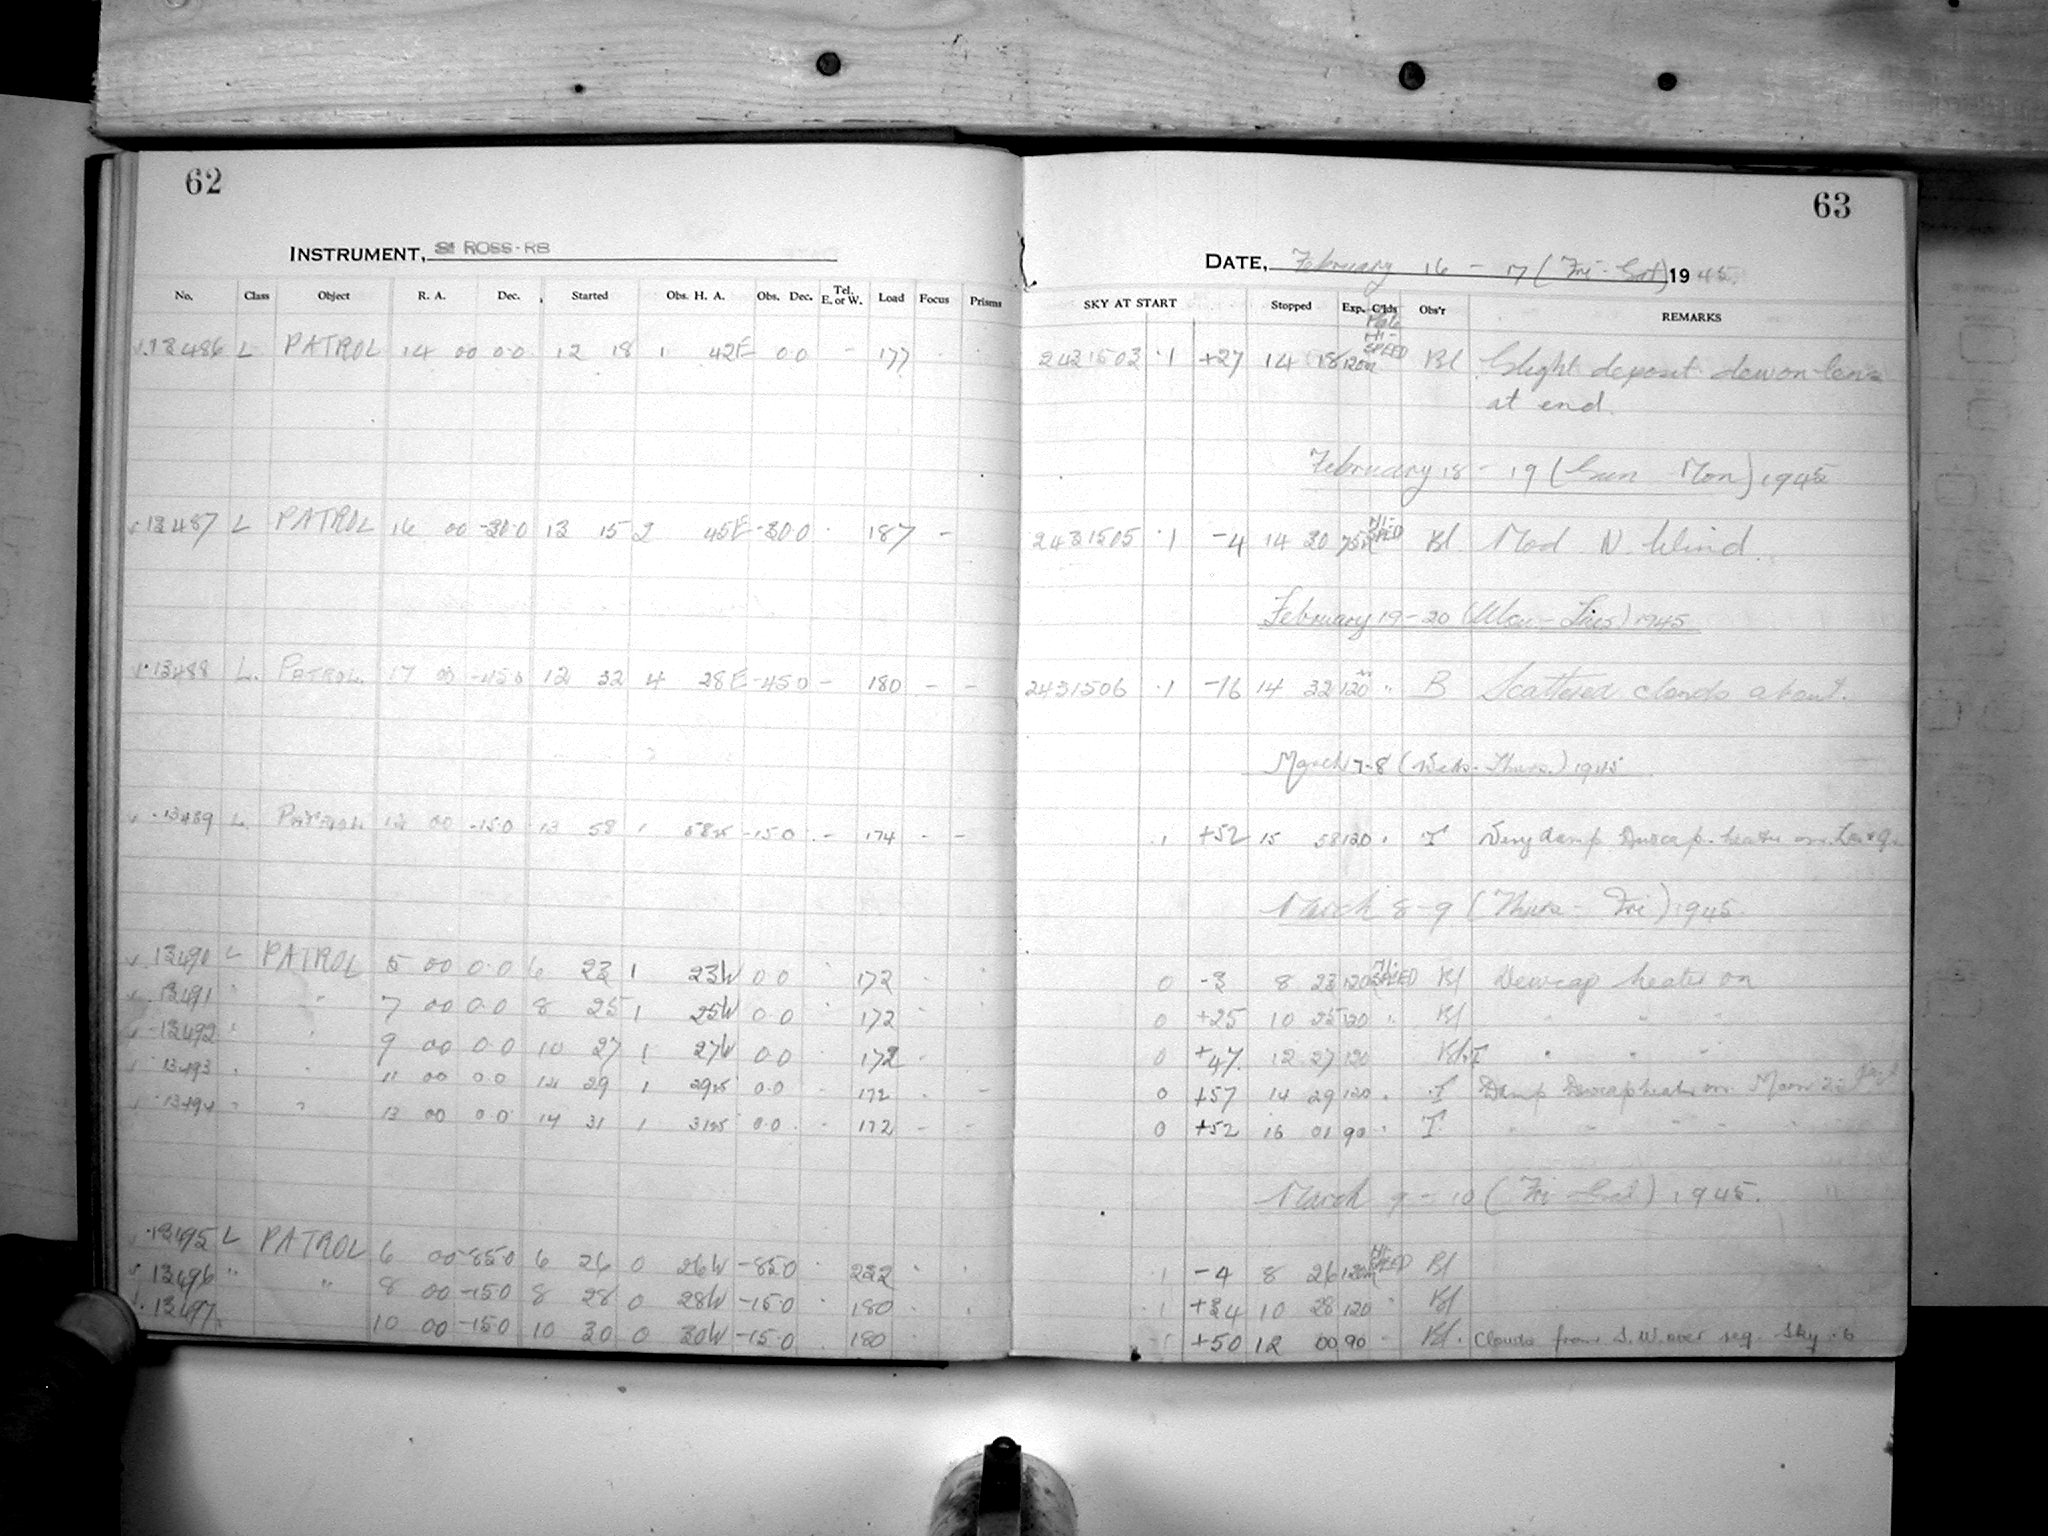 62
INSTRUMENT, ROSS-RB
No. Class Object R. A. Dec. Started Obs. H. A. Obs. Dec. Tel. E. or W. Load Focus Prisms
13486 L PATROL 14 00 0.0 12 18 1 42E 0.0 - 177 -
13487 L PATROL 16 00 -30.0 13 15 2 45E -30.0 187 -
13488 L. PATROL 17 00 -45.0 12 32 4 28E -45.0 - 180 - -
13489 L. PATROL 12 00 -15.0 13 58 1 -15.0 - 174 - -
13490 L PATROL 5 00 0.0 6 23 1 23W 0.0 172
13491 " " 7 00 0.0 8 25 1 25W 0.0 172
13492 " " 9 00 0.0 10 27 1 27W 0.0 172
13493 " " 11 00 0.0 12 29 1 0.0 - 172 - -
13494 " " 13 00 0.0 14 31 1 0.0 - 172 - -
13495 L PATROL 6 00 -85.0 6 26 0 26W -85.0 232
13496 " " 8 00 -15.0 8 28 0 28W -15.0 180
13497 10 00 -15.0 10 30 0 30W -15.0 180
63
DATE, February 16 - 17 (Fri - Sat) 1945.
SKY AT START Stopped Exp. C'lds Obs'r REMARKS
2431503 .1 +27 14 18 120m HI-SPEED Bl Slight deposit dew on lens
at end.
February 18 - 19 (Sun Mon) 1945
2431505 .1 -4 14 30 75m HI-SPEED Bl Mod N. Wind.
February 19-20 (Mon - Tues) 1945
2431506 .1 -16 14 32 120 " B Scattered clouds about.
March 7-8 (Weds. - Thurs.) 1945
.1 +52 15 58 120 " T Very damp Dewcap heater on.
March 8-9 (Thurs - Fri) 1945.
0 -3 8 23 120m HI-SPEED Bl Dewcap heater on
0 +25 10 25 120 " Bl " " "
0 +47 12 27 120 Bl.T " " "
0 +57 14 29 120 " T Damp Dewcap heater on. Moon
0 +52 16 01 90 " T " " " " "
March 9 - 10 (Fri Sat) 1945.
.1 -4 8 26 120m HI-SPEED Bl
.1 +34 10 28 120 " Bl
.1 +50 12 00 90 " Bl. Clouds from S.W. over reg. Sky .6